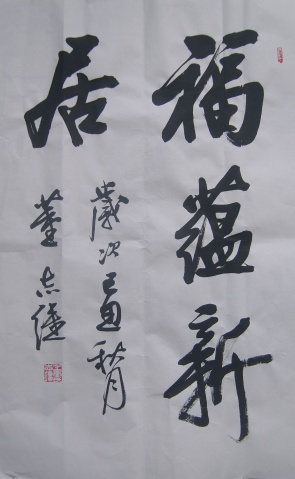 福蕴新
居
岁次己酉秋月
董志强